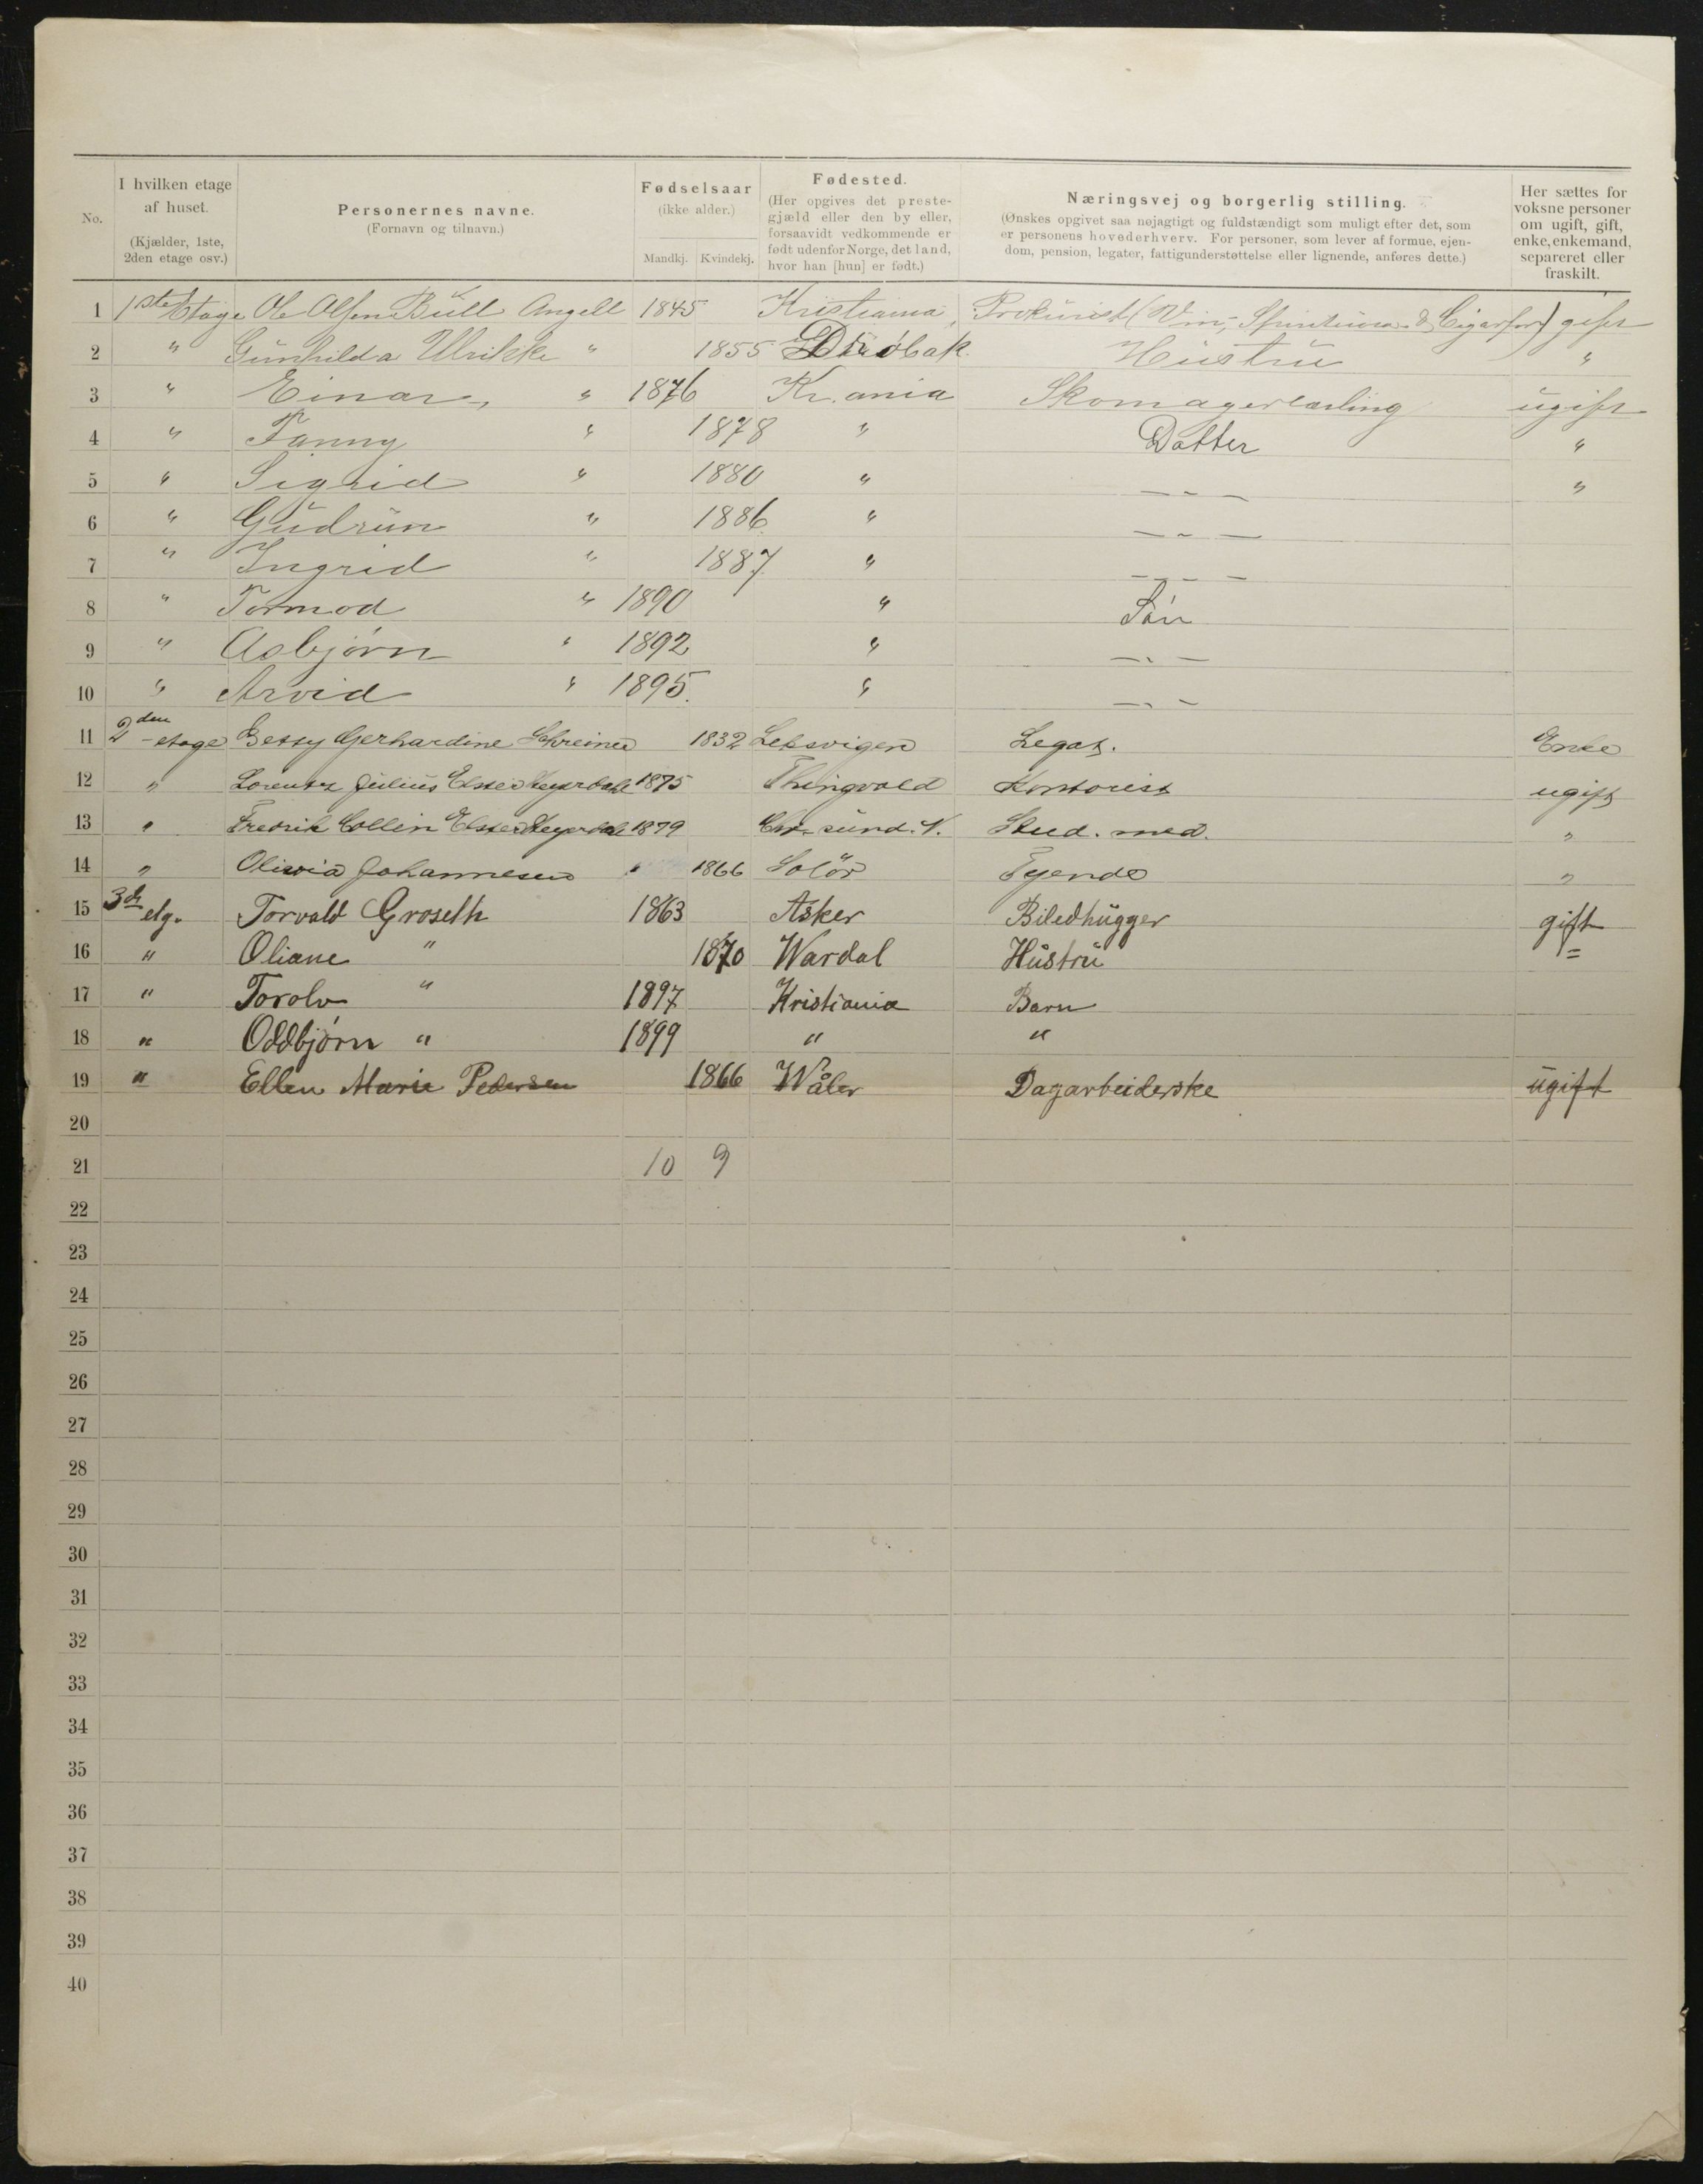 No.
I hvilken etage
af huset.
(Kjælder, 1ste,
2den etage osv.)
Personernes navne.
(Fornavn og tilnavn.)
Fødselsaar
(ikke alder.)
Mandkj. Kvindekj.
Fødested.
(Her opgives det preste-
gjæld eller den by eller,
forsaavidt vedkommende er
født udenfor Norge, det land,
hvor han [hun] er født.)
Næringsvej og borgerlig stilling.
(Ønskes opgivet saa nøjagtigt og fuldstændigt som muligt efter det, som
er personens hovederhverv. For personer, som lever af formue, ejen-
dom, pension, legater, fattigunderstøttelse eller lignende, anføres dette.)
Her sættes for
voksne personer
om ugift, gift,
enke, enkemand,
separeret eller
fraskilt.
1 1ste Etage Ole Olsen Bull Angell 1845 Kristiania Prokurist (Vin, & Cigarfor) gift
2 " Gunhilda Ulrikke " 1855 Drøbak. Hustru "
3 " Einar, " 1876 Kr.ania Skomagerlærling ugift
4 " Fanny " 1878 " Datter "
5 " Sigrid " 1880 " — " — "
6 " Gudrun " 1886 " — " —
7 " Ingrid " 1887 " — " —
8 " Tormod " 1890 " Søn
9 " Asbjørn " 1892 " — " —
10 " Arvid " 1895. " — " —
11 2den etage Betsy Gerhardine Schreiner 1832 Leksvigen Legat. Enke
12 " Lorentz Julius Elster Heyerdahl 1875 Thingvold Kontorist ugift
13 " Fredrik Collin Elster Heyerdahl 1879 Chr.sund. N. Stud. med. "
14 " Olivia Johannesen " 1866 Solør Tyende "
15 3de etg. Torvald Groseth 1863 Asker Biledhugger gift
16 " Oliane " 1870 Wardal Hustru =
17 " Torolv " 1897 Kristiania Barn
18 " Oddbjørn " 1899 " "
19 " Ellen Marie Pedersen 1866 Wåler Dagarbeiderske ugift
20
21 10 9
22
23
24
25
26
27
28
29
30
31
32
33
34
35
36
37
38
39
40